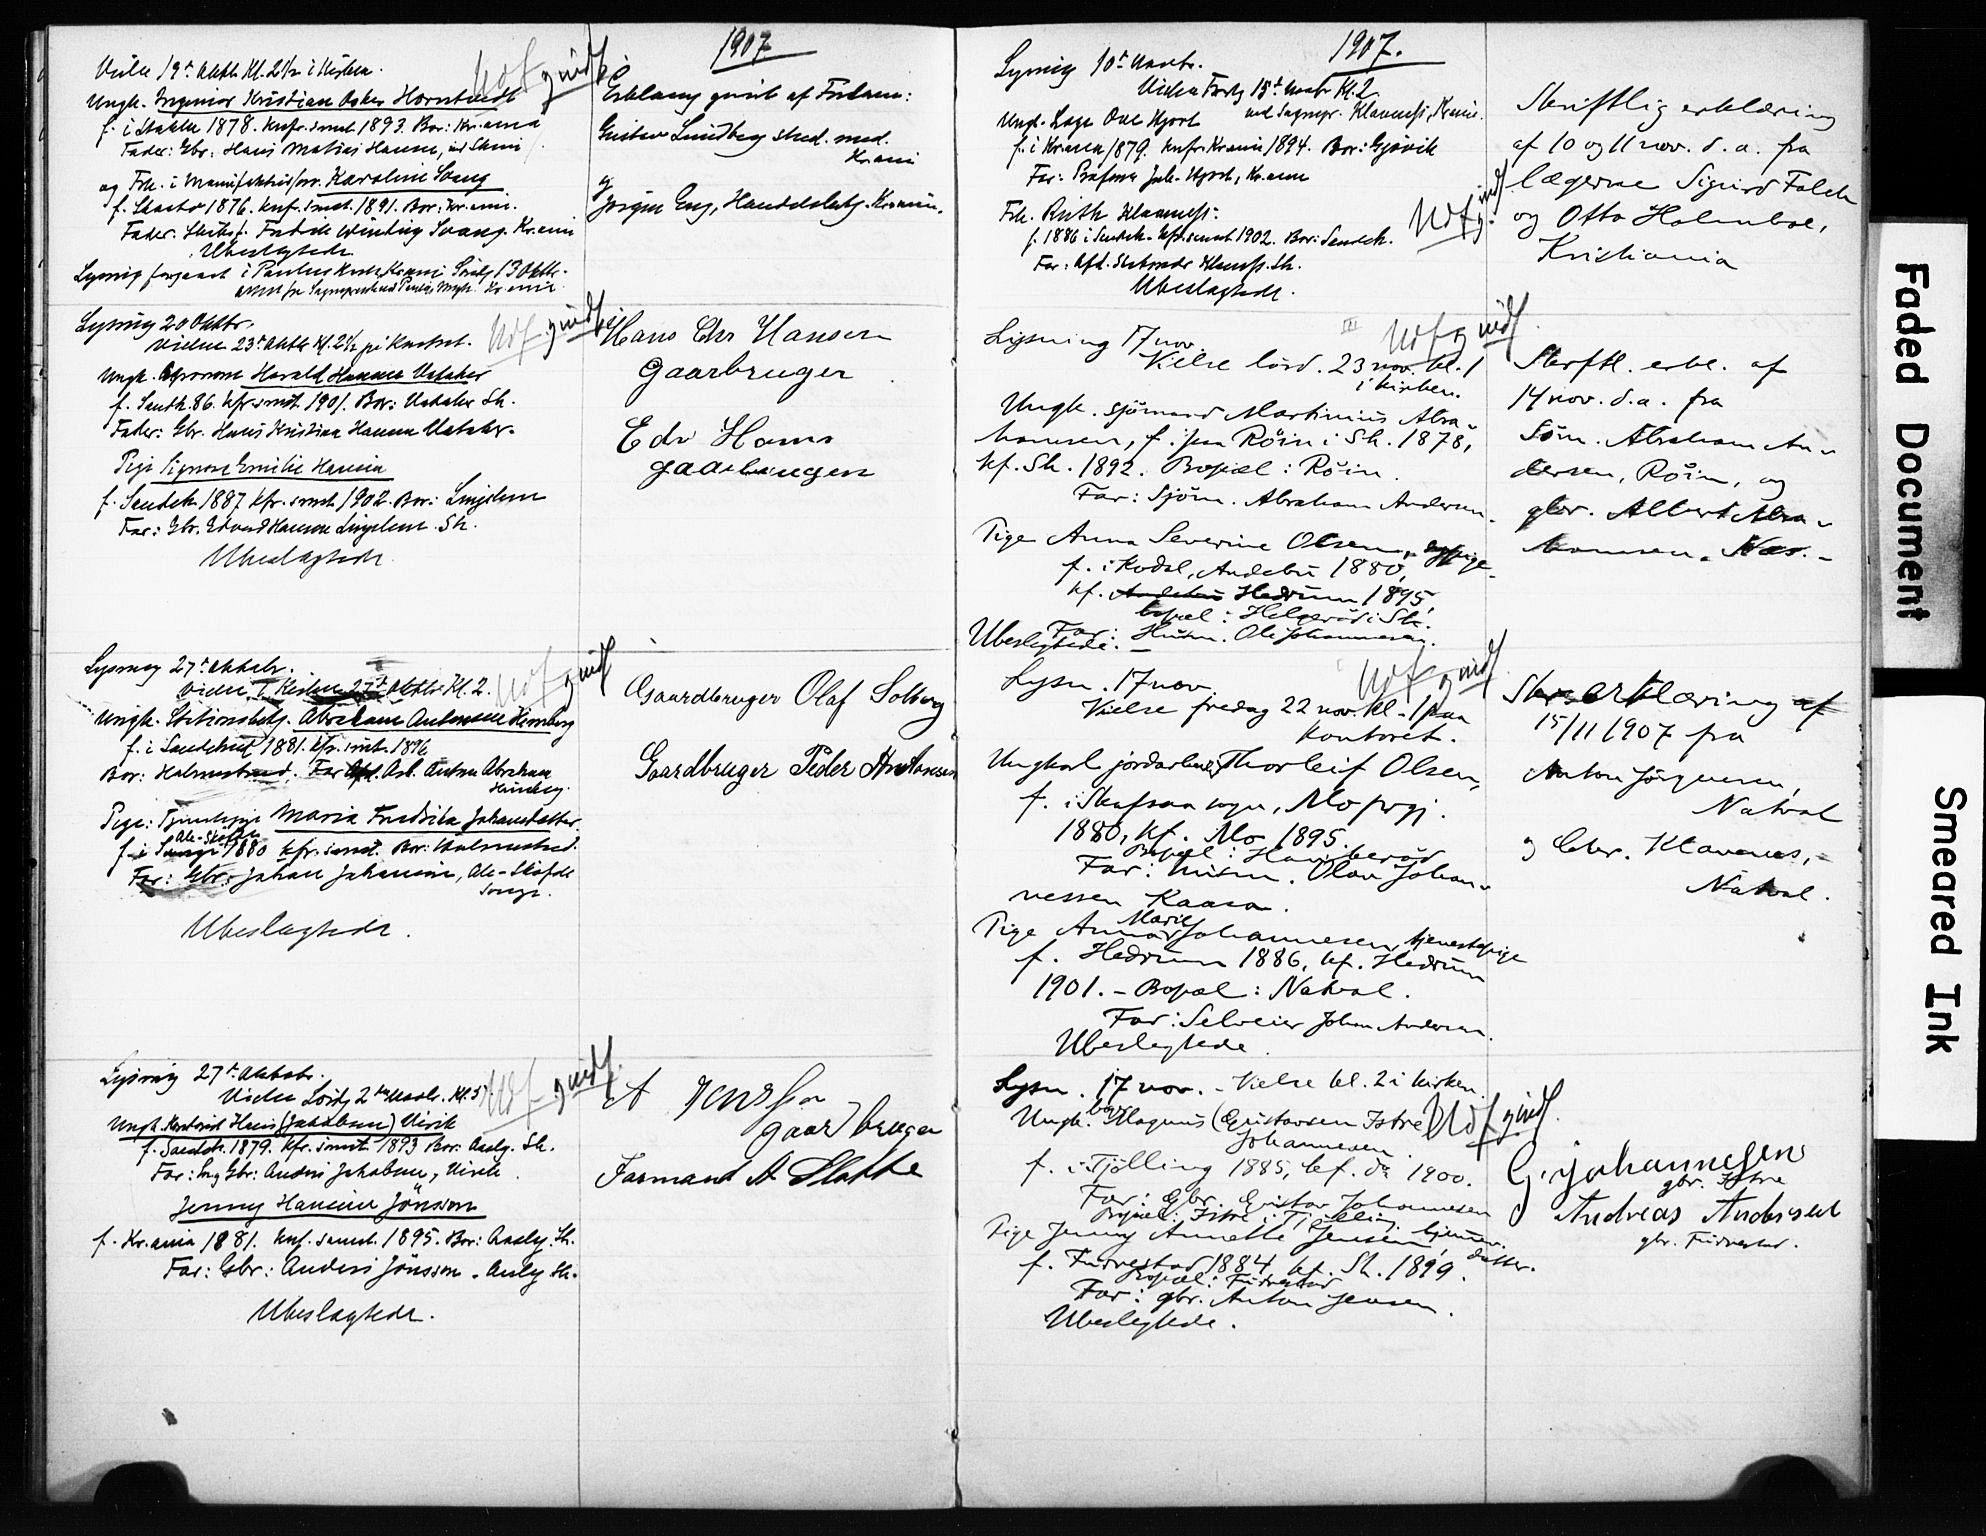 1907
Vielse 19de Oktb. Kl. 2½ i Kirken.
Udf g indf
Ungk. Ingeniør Kristian Oskar Hornstvedt
f. i Stokke 1878. Knf. smst 1893. Bor: Kr.ania
Fader: Gbr. Hans Mathias Hansen,
og Frk. i Manufakturforr. Karoline Svang
f. Skaato 1876. Knf. smst. 1891. Bor: Kr.ania.
Fader: Skibsf. Svang. Kr.ania
Ubeslægtede
Lysning foregaaet i Paulus Kirke Kr.ania Søndag 13 Oktbr.
Erklæring givet af Forlovere:
Gustav Lundberg stud. med.
Kr.ania
og
Jørgen Eng, Handelsbetj. Kr.ania.
Lysning 20 Oktbr.
Vielse 23de Oktb. Kl. 2½ på Kontoret.
Udf g indf
Ungk. Harald Hansen Vataker
f. Sandh. 86. Kfr. smst. 1901. Bor: Vataker Sh.
Fader: Gbr. Hans Kristian Hansen Vataker.
Pige Signora Emilie Hansen
f. Sandeh. 1887 Kfr. smst. 1902. Bor: Lingelem
Far: Gbr. Edvard Hansen Lingelem. Sh.
Ubeslægtede
Hans Chr Hansen
Gaarbruger
Edv Hans
gaarbrugen
Lysning 27de Oktobr.
Vielse i Kirken 27de Oktbr Kl. 2.
Udf g indf
Ungk. Stationsbetj. Abraham Antonsen Himberg
f. i Sandeherred 1881. Kfr. smst. 1896
Bor: Holmestrand. Far Arb. Anton Abraham
Himberg.
Pige: Tjenestepige Maria Fredrika Johansdatter.
Ale-Skøfde
f. i 1880 Kfr. smst. Bor: Holmestrand.
Far: Gbr: Johan Johansson, Ale-Skøfde
Sverge.
Ubeslægtede.
Gaardbruger Olaf Solberg
Gaardbruger Peder Andersen
Lysning 27de Oktobr.
Vielse Lørdg 2den Novbr. Kl. 5
Udf g indf
Ungk. Hans (Jakobsen) Virik
f. Sandeh. 1879. Kfr. smst. 1893 Bor: Sh.
Far: Gbr: Anders Jakobsen, Virik
Jenny Hansine Jönsson
f. Kr.ania 1881. Knf. samst. 1895. Bor: Sh.
Far: Gbr: Anders Jönsson. Sh.
Ubeslægtede.
A Jensson
gaardbruger
Formand A Slatte
1907.
Lysning 10de Novbr.
Vielse Fredg 15de Novbr Kl. 2.
ved Sagnepr. Klaveness, Kr.ania.
Ungk. Lage Ove Hjort
f. i Kr.ania 1879. Knf. Kr.ania 1894. Bor: Gjøvik
Far: Profesor Joh. Hjort, Kr.ania
Udf g indf
Frk. Ruth Klaveness:
f. 1886 i Sandeh. Kfr. smst 1902. Bor: Sandeh.
Far: Afd. Skibsreder Klavenss. Sh.
Ubeslægtede.
Skriftlig erklæring
af 10 og 11 nov. d. a. fra
lægerne Sigurd Falch
og Otto Holmboe,
Kristiania
Lysning 17 nov.
Udf g indf
Vielse lörd. 23 nov. kl. 1
i kirken.
Ungk. sjömand Martinius Abra-
hamsen, f. paa Röin i Sh. 1878,
kf. Sh. 1892. Bopæl: Röin.
Far: Sjöm. Abraham Andersen.
Pige Anna Severine Olsen,
f. i Kodal, Andebu 1880,
kf. Andebu Hedrum 1895,
bopæl: Helgeröd i Sh.
Far: Husm. Ole Johannesen.
Ubeslegtede. -
Skrftl. erkl. af
14 nov. d. a. fra
Söm. Abraham An-
dersen, Röin, og
gbr. Albert Abra-
hamsen. Nes. -
Lysn. 17 nov.
Udf g indf
Vielse fredag 22 nov. kl. 1 paa
kontoret.
Ungkarl jordarb. Thorleif Olsen,
f. i Skafsaa sogn, Mo prgj.
1880, kf. Mo 1895.
Bopæl: Haukeröd
Far: husm. Olav Johan-
nessen Kaasa.
Marie
Pige Anna Johannesen, tjenestepige
f. Hedrum 1886, kf. Hedrum
1901. - Bopæl: Natvol.
Far: Selveier Johan Andersen.
Ubeslegtede.
Skr. erklæring af
15/11 1907 fra
Anton Jörgensen,
Natvol
og Gbr. Klavenes,
Natvol.
Lysn. 17 nov. - Vielse kl. 2 i kirken
Udf g indf
Ungk. Magnus (Gustavsen Istre
Johannesen
f. i Tjölling 1885, kf. do 1900.
Far: Gbr. Gustav Johannesen
Bopæl: Istre i Tjölling
Pige Jenny Annette Jensen, hjemmev.
datter.
f. Furustad 1884 kf. Sh. 1899.
Bopæl: Furustad
Far: gbr. Anton Jensen.
Ubeslegtede.
G. Johannesen
gbr. Istre
Andreas Andersen
gbr. Furustad.
Faded Document
Smeared Ink